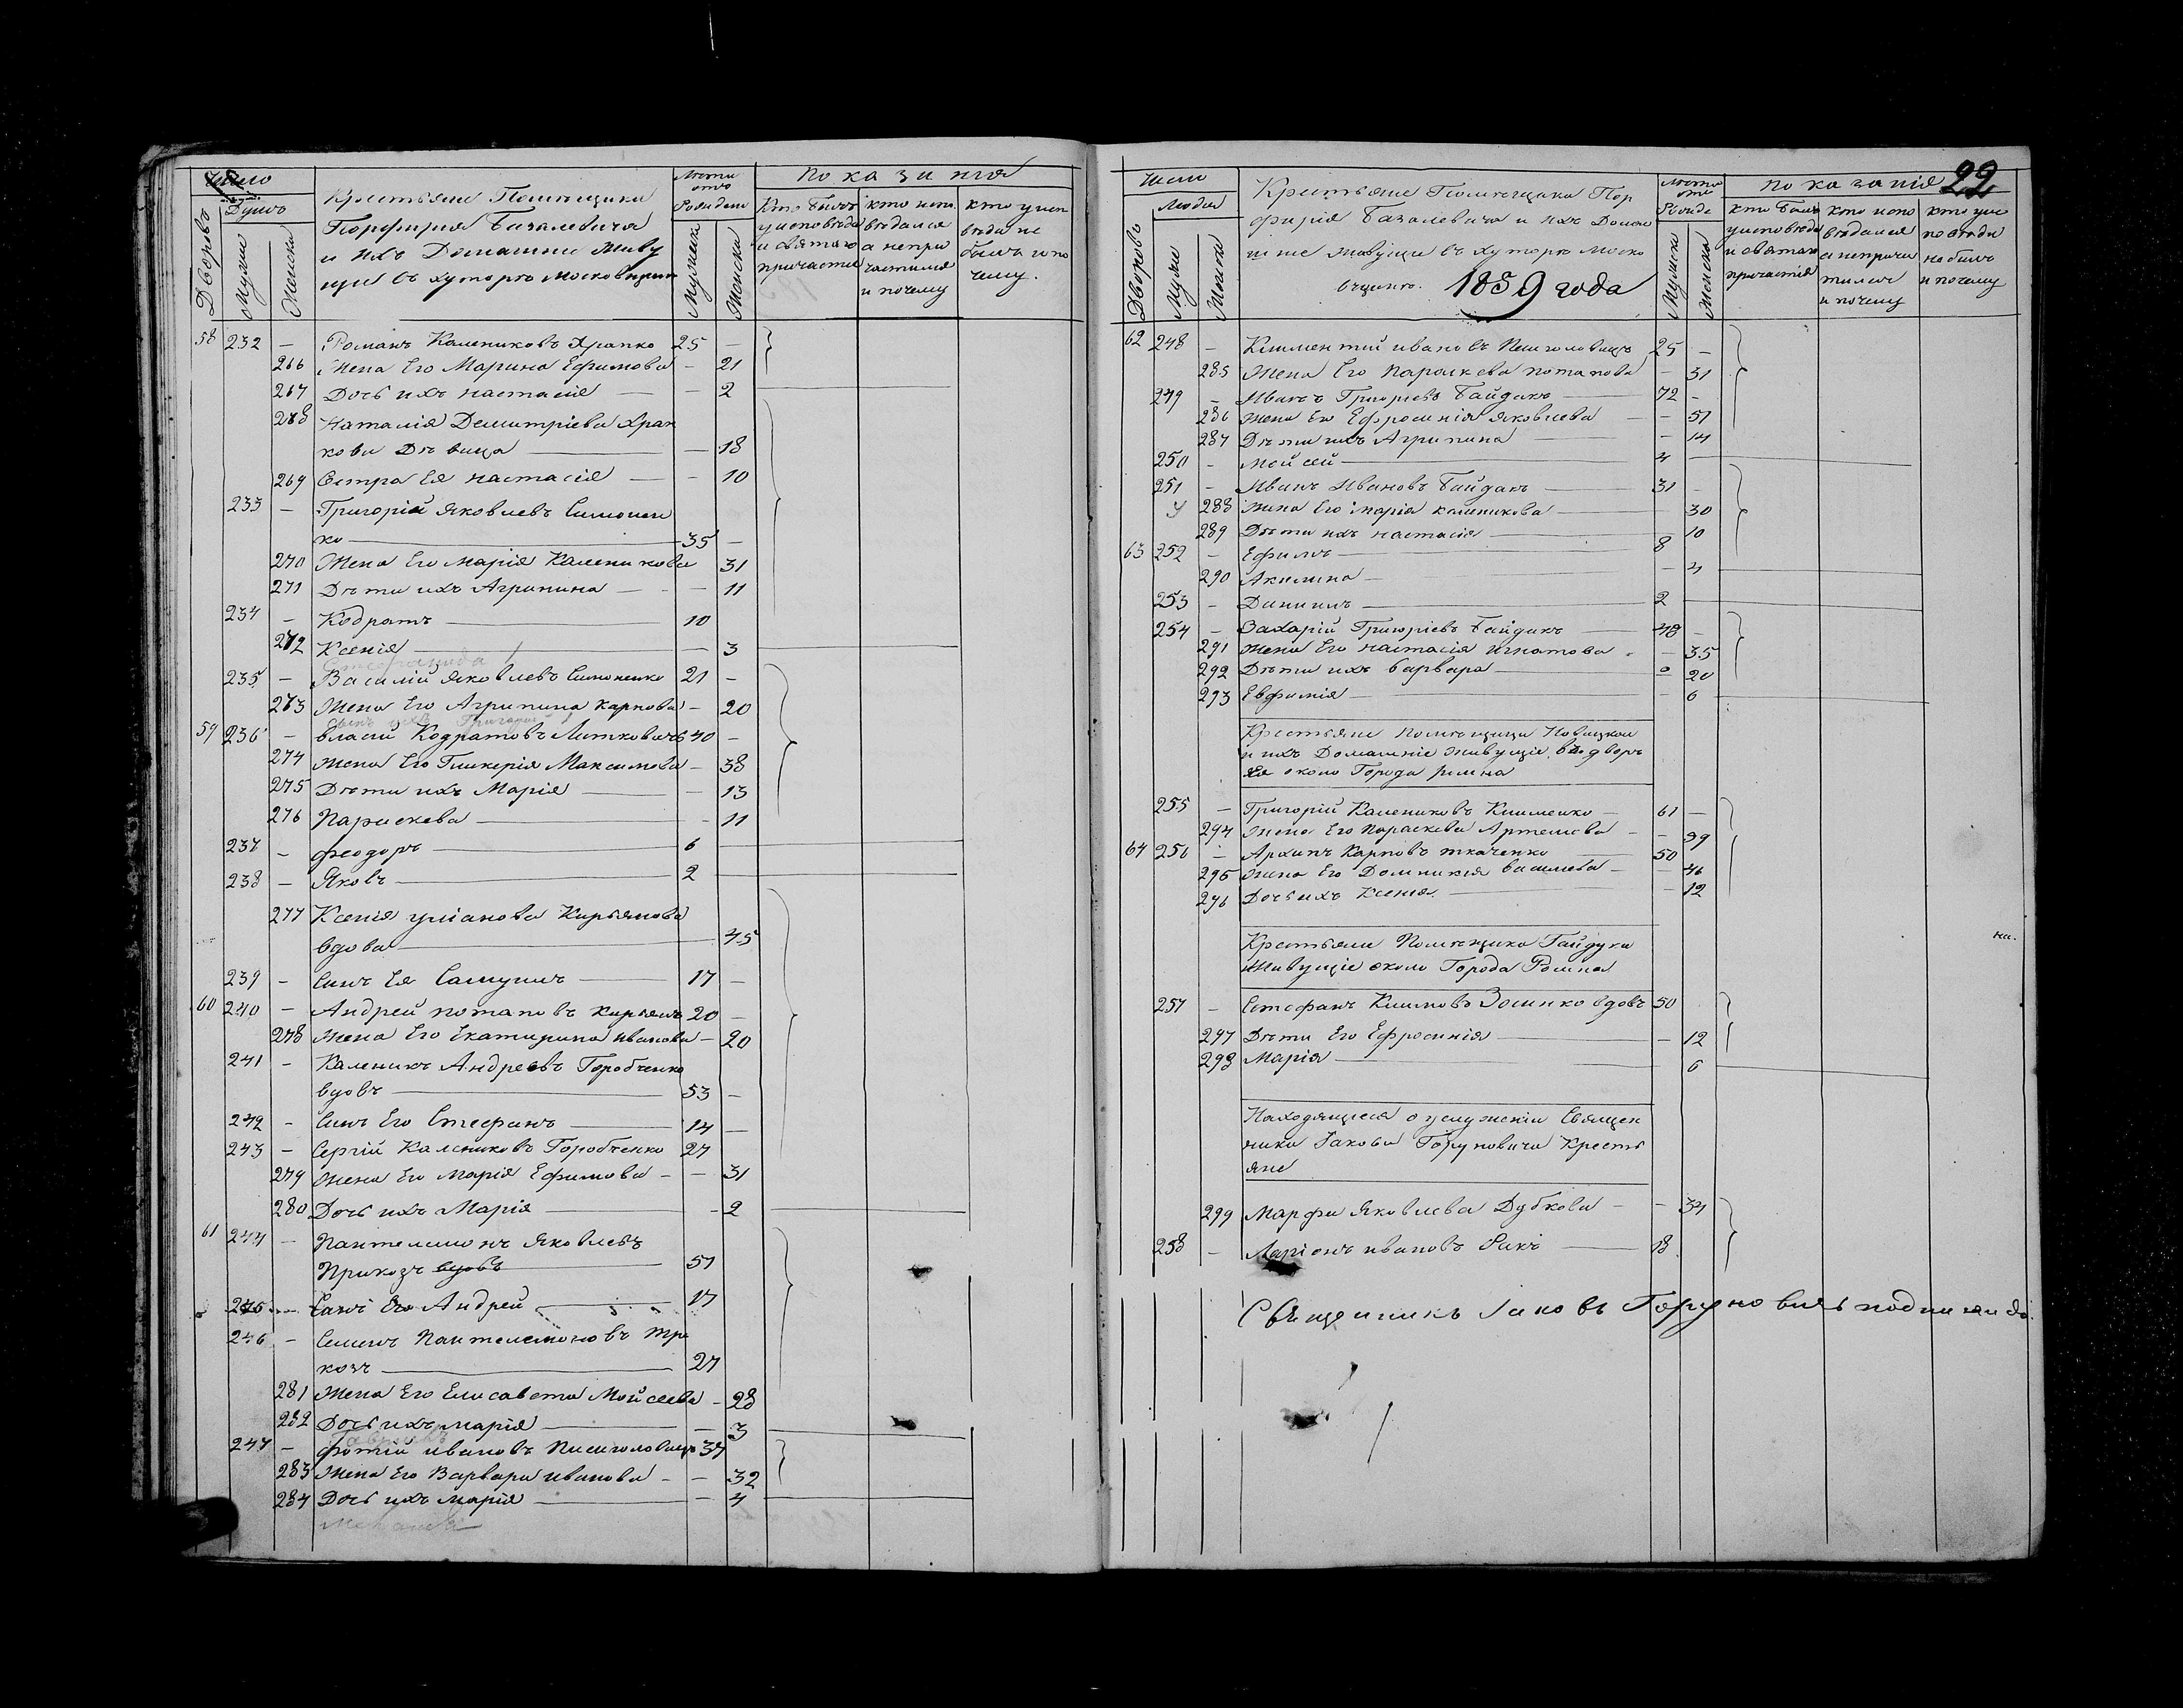 Число
Душъ
Дворовъ
Мужска
Женска
Крестьяне Помѣщика
Порфирія Базалевича
и ихъ Домашни живу
щіе въ хуторѣ Московщин
Лѣта
отъ
Рожденія
Мужеск
Женска
Показанія
Кто былъ
у исповѣди
и святаго
причастія
кто испо
вѣдался
а непри
частился
и почему
кто у исп
вѣди не
былъ и по
чему.
58 232 — Романъ Калениковъ Храпко 25 —
266 Жена Его Марина Ефимова — 21
267 Дочь ихъ настасія — 2
268 Наталія Демитріева Храп
кова Дѣвица — 18
269 Сестра Ея настасія — 10
233 — Григорій Яковлевъ Симонен
ко 35 —
270 Жена Его Марія Каленикова 31
271 Дѣти ихъ Агрипина — 11
234 — Кодратъ 10
272 Ксенія — 3
Стефанида
235 — Василій Яковлевъ Симоненко 21 —
273 Жена Его Агрипина Карпова — 20
сынъ ихъ Григорій
59 236 — власій Кодратовъ Литковичъ 40 —
274 Жена Его Гликерія Максимова — 38
275 Дѣти ихъ Марія — 13
276 Параскева — 11
237 — феодоръ 6
238 — Яковъ 2
277 Ксенія уліанова Кирьянова
вдова 45
239 — Синъ Ея Самуилъ 17 —
60 240 — Андрей потаповъ Кирьянъ 20 —
278 Жена Его Екатирина иванова — 20
241 — Каленикъ Андреевъ Горобченко
вдовъ 53 —
242 — Синъ Его Стефанъ 14 —
243 — Сергій Калениковъ Горобченко 27
279 Жена Его Марія Ефимова — — 31
280 Дочь ихъ Марія — 2
61 244 — Пантелимонъ Яковлевъ
Прихозъ вдовъ 51
245 — Синъ Его Андрей 17
246 — Семенъ Пантелемоновъ При
хозъ 27
281 Жена Его Елисавета Мойсеева — 28
282 Дочь ихъ марія — 3
247 — фотій ивановъ Пишголовецъ 34
283 Жена Его Варвара иванова — — 32
284 Дочь ихъ марія — 4
22
Число
Людей
Дворовъ
Мужска
Женска
Крестьяне Помѣщика Пор
фирія Базалевича и ихъ Домаш
ніе живущи въ хуторѣ Моско
вщинѣ. 1859 года
Лѣта
отъ
Рожде
Мужска
Женска
показанія
кто былъ
у исповѣди
и святаго
причастія
кто испо
вѣдался
а неприча
тился
и почему
кто у ис
повѣди
не былъ
и почему
62 248 — Климентій ивановъ Пишголовецъ 25 —
285 Жена Его параскева потапова — 31
249 — Иванъ Григорьевъ Гайдакъ 72 —
286 Жена Его Ефросинія Яковлева — 51
287 Дѣти ихъ Агрипина — 14
250 — Мойсей 4
251 — Иванъ Ивановъ Гайдакъ 31 —
288 Жена Его марія каленикова 30
289 Дѣти ихъ настасія 10
63 252 — Ефимъ 8
290 Акилина — 4
253 — Данилъ 2
254 — Захарій Григоріевъ Гайдакъ 48 —
291 Жена Его настасія игнатова — 35
292 Дѣти ихъ варвара 20
293 Евфимія — 6
Крестьяне помѣщици Новицкой
и ихъ Домашніе живущіе въ дворѣ
Ея около Города ромна
255 — Григорій Калениковъ Клименко 61 —
294 Жена Его Параскева Артемова — 39
64 256 — Архипъ Карповъ ткаченко 50
295 Жена Его Домникія василева — 46
296 Дочь ихъ Ксенія. — 12
Крестьяне Помѣщика Гайдука
живущіе около Города Ромна
257 — Стефанъ Климовъ Зосимко вдовъ 50
297 Дѣти Его Ефросинія — 12
298 Марія 6
Находящіеся о услуженіи Священ
ника Іакова Горуновича Кресть
яне
299 Марфа Яковлева Дубкова — — 34
258 — Ларіонъ ивановъ 18
Священникъ Іаковъ Горуновичъ